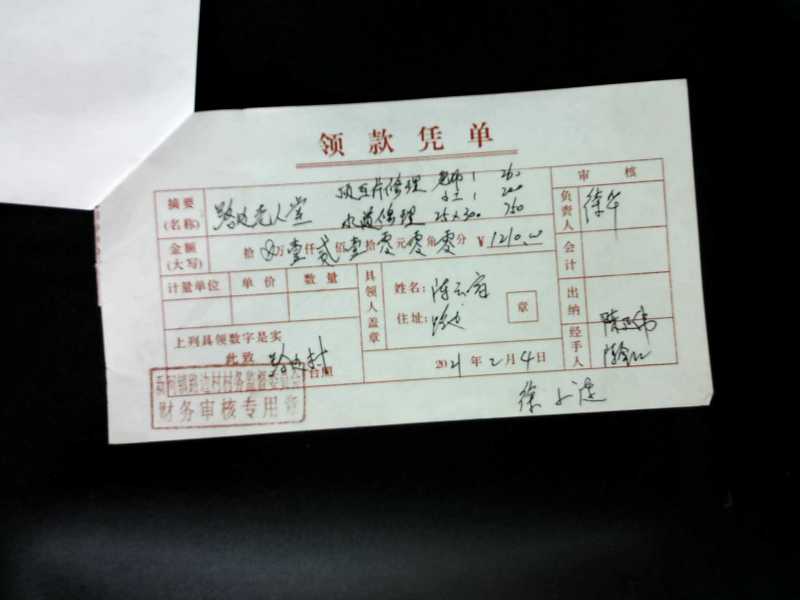 领款凭单
摘要
(名称)
路边老人堂
修理 老师1 260
小工1 200
水道修理 25×30 750
审核
负责人
金额
(大写)
拾万壹仟贰佰壹拾零元零角零分 ¥1210.00
会计
计量单位 单价 数量
具领人盖章
姓名:
住址:路边
章
出纳
上列具领数字是实
此致 路边村 台照
2021年2月4日
经手人
村务监督委员会
财务审核专用章